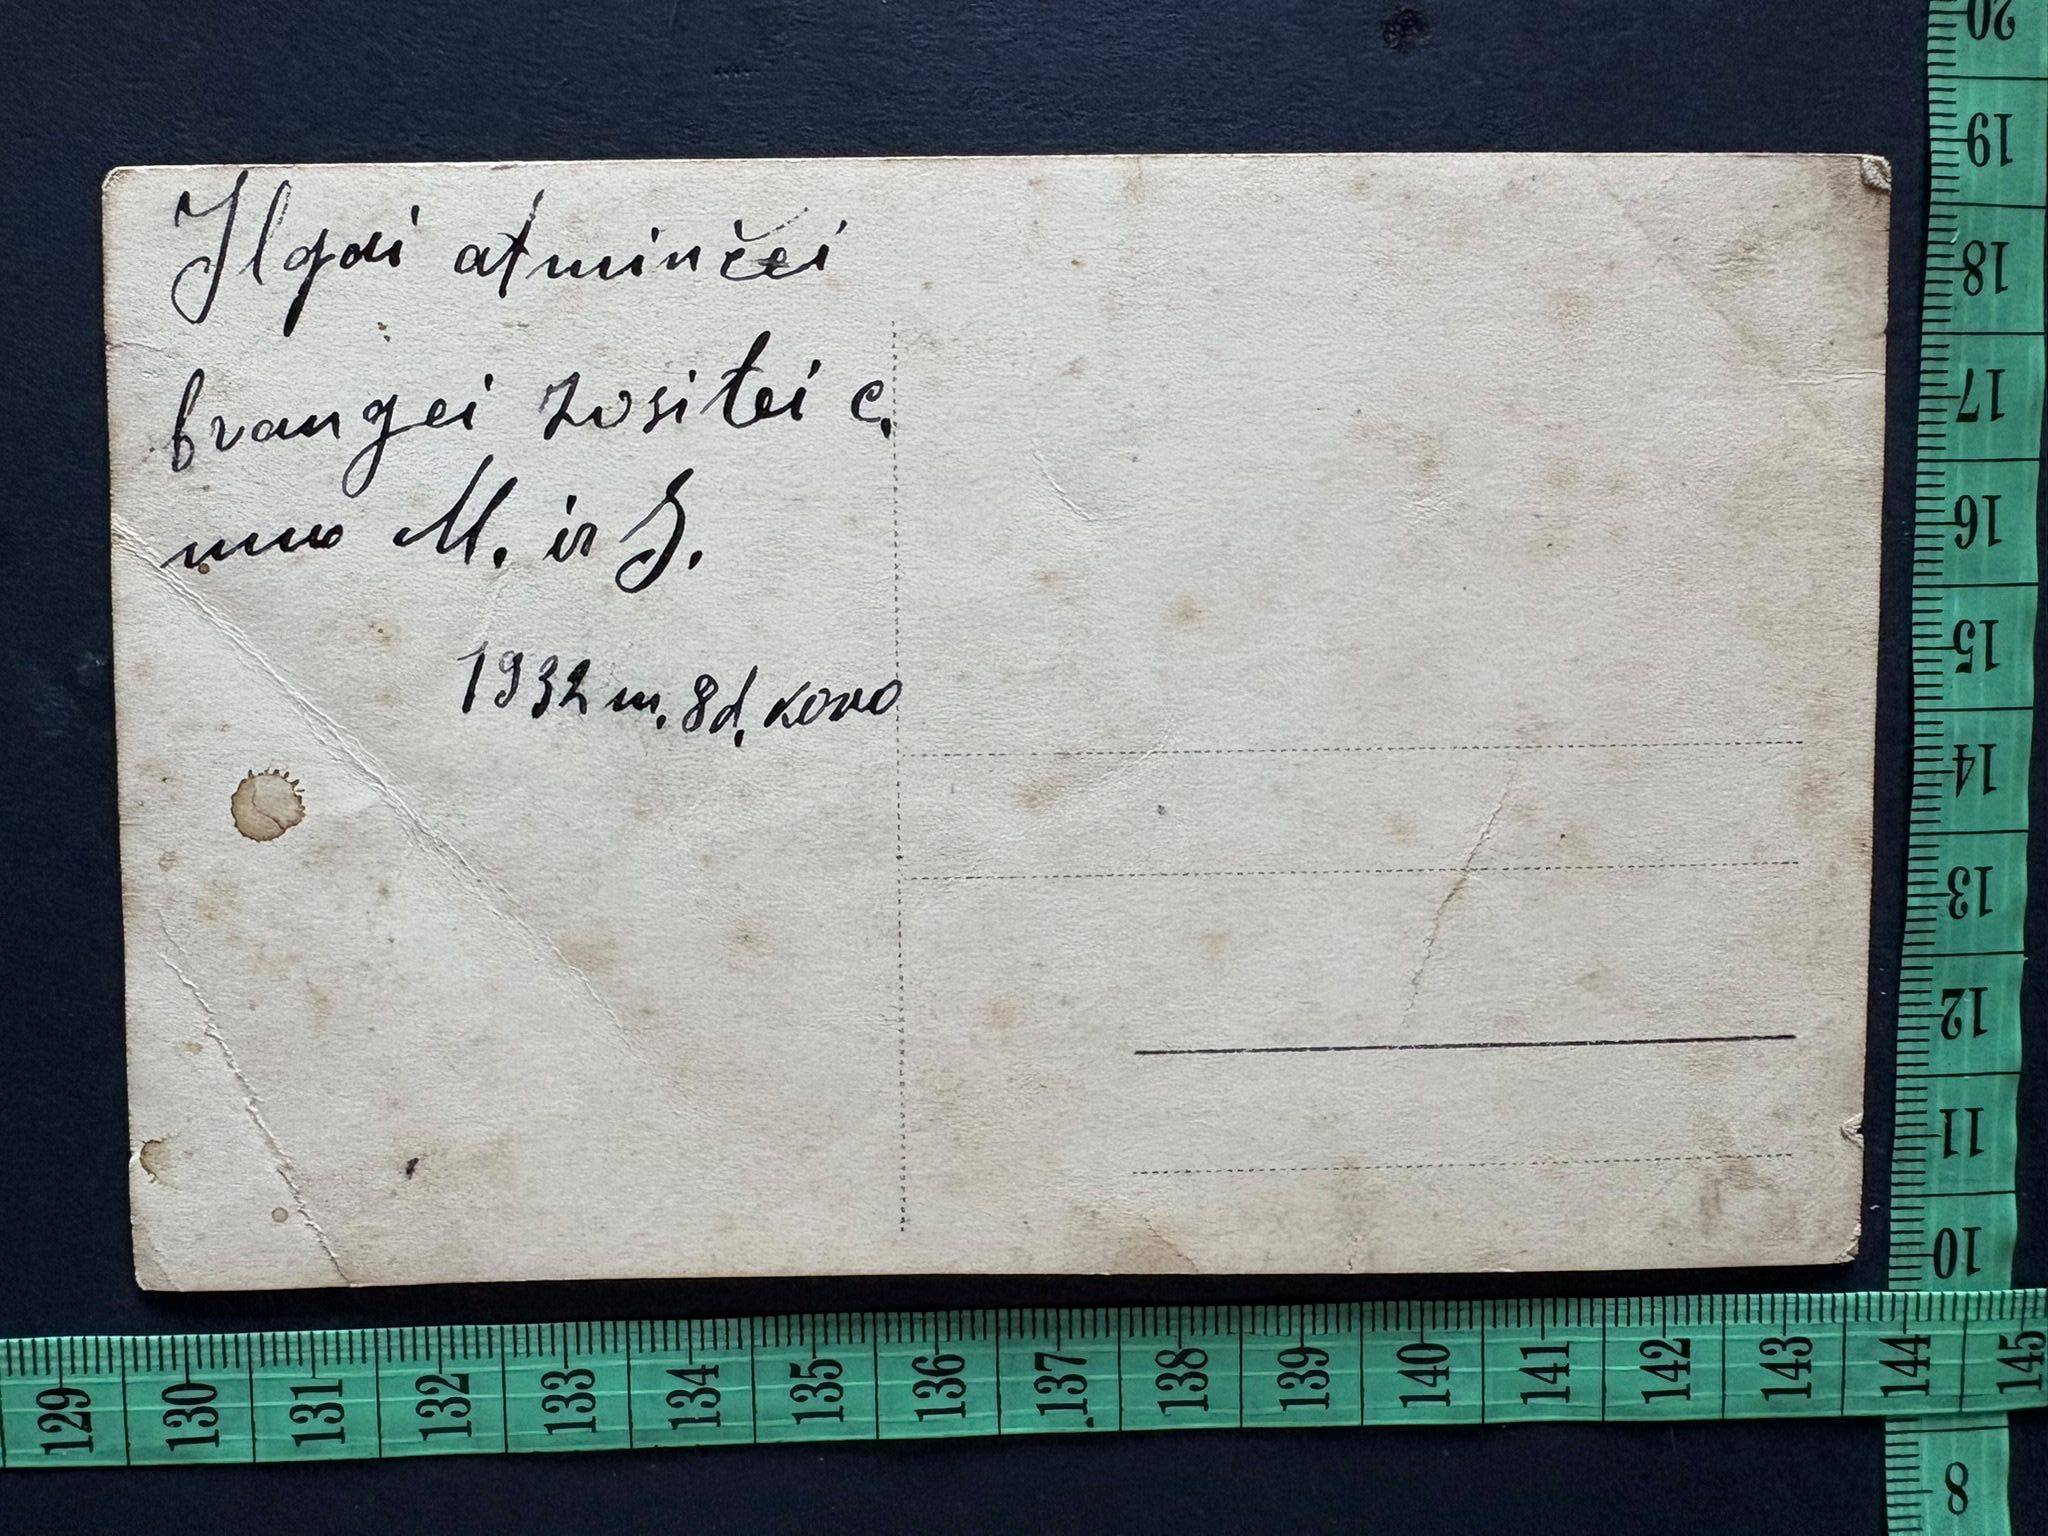 Ilgai atminčei
brangei zositei c.
nuo M. ir J.
1932 m. 8 d. kovo
20
19
18
17
16
15
14
13
12
11
10
8
129 130 131 132 133 134 135 136 137 138 139 140 141 142 143 144 145